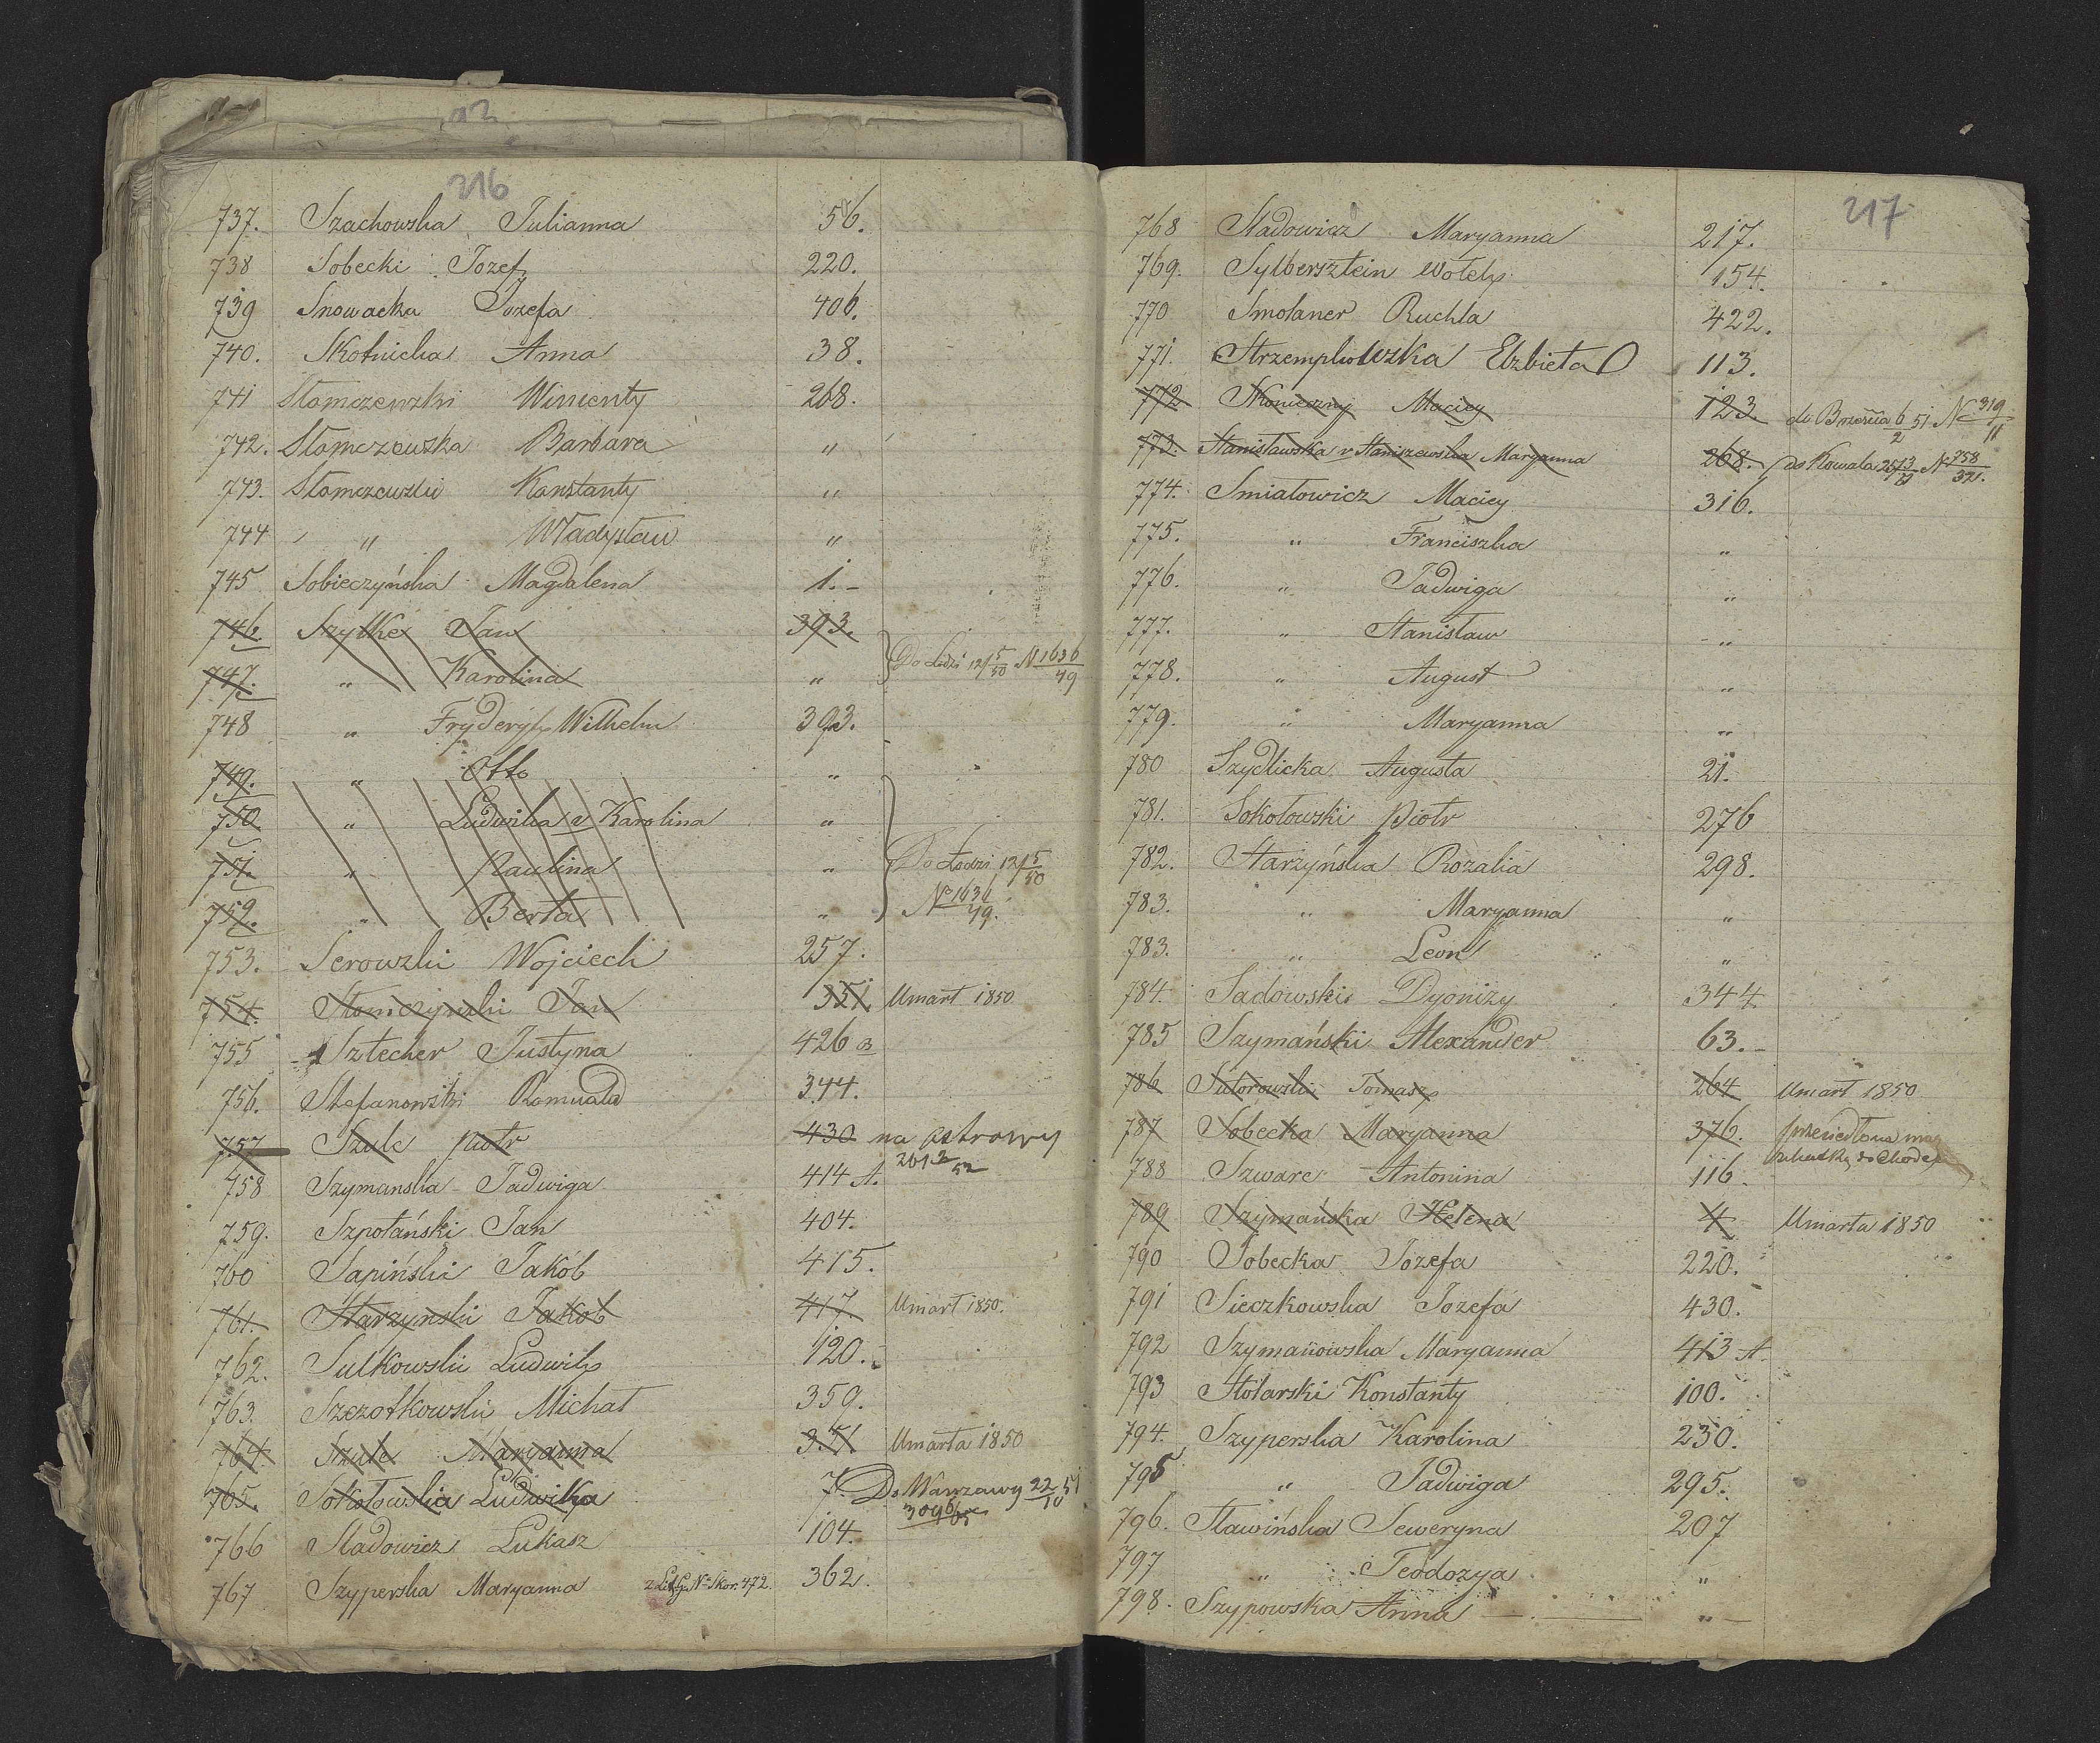 216
737. Szachowska Julianna 56.
738 Sobecki Jozef 220.
739 Snowacka Jozefa 406.
740. Skotnicka Anna 38.
741 Słomczewski Wincenty 268.
742. Słomczewska Barbara "
743. Słomczewski Konstanty "
744 " Władysław "
745 Sobieczyńska Magdalena 1.-
746. Szytke Jan 393.
747. " Karolina " Do Łodzi 12/5 50 N 1636/49
748 " Fryderyk Wilhelm 393.
749. " Otto "
750 " Ludwika v Karolina "
751. " Paulina " Do Łodzi 12/5 50
752. " Berta " No 1636/49.
753. Serowski Wojciech 257.
754. Słomczynski Jan 351. Umart 1850
755 Sztecher Justyna 426 B
756. Stefanowski Romuald 344.
757 Szulc Piotr 430 na Ostrowy
758 Szymanska Jadwiga 414 A.
759. Szpotański Jan 404.
760 Sapiński Jakób 415.
761. Starzynski Jakob 417. Umart 1850.
762. Sulkowski Ludwik 120.
763. Szczotkowski Michał 359.
764. Szulc Maryanna 351 Umarta 1850
765. Sokołowska Ludwika 7. Do Warszawy 22/10 51
766 Sladowicz Lukasz 104.
767 Szyperska Maryanna No Skor. 472. 362.
217
768 Sladowicz Maryanna 217.
769. Sylbersztein Wolek 154.
770 Smolaner Ruchla 422.
771. Strzemplowszka Elzbieta 113.
772 Skonieczny Maciey 123 do Brześcia 6/2 51 N 319/11
773. Stanisławska v Staniszewska Maryanna 268. do Kowala N 258/32.
774. Smiałowicz Maciey 316.
775. " Franciszka "
776. " Jadwiga "
777. " Stanisław "
778. " August "
779. " Maryanna "
780 Szydlicka Augusta 21.
781. Sokołowski Piotr 276
782. Starzyńska Rozalia 298.
783. " Maryanna "
783. " Leon "
784. Sadowski Dyonizy 344
785 Szymański Alexander 63.-
786 Sutorowski Tomasz 264 Umart 1850
787 Sobecka Maryanna 376. przesiedlona
788 Szwarc Antonina 116.
789 Szymańska Helena 4 Umarta 1850
790 Sobecka Jozefa 220.
791 Sieczkowska Jozefa 430.
792 Szymanowska Maryanna 413 A.
793 Stolarski Konstanty 100.
794. Szyperska Karolina 230.
795 " Jadwiga 295.
796. Sławińska Seweryna 207
797 " Teodozya "
798. Szypowska Anna "